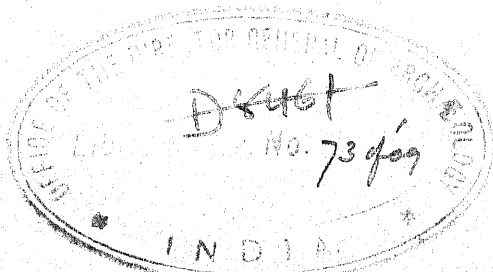 OFFICE OF THE DIRECTOR GENERAL OF ARCHAEOLOGY
D8461
No.
INDIA.